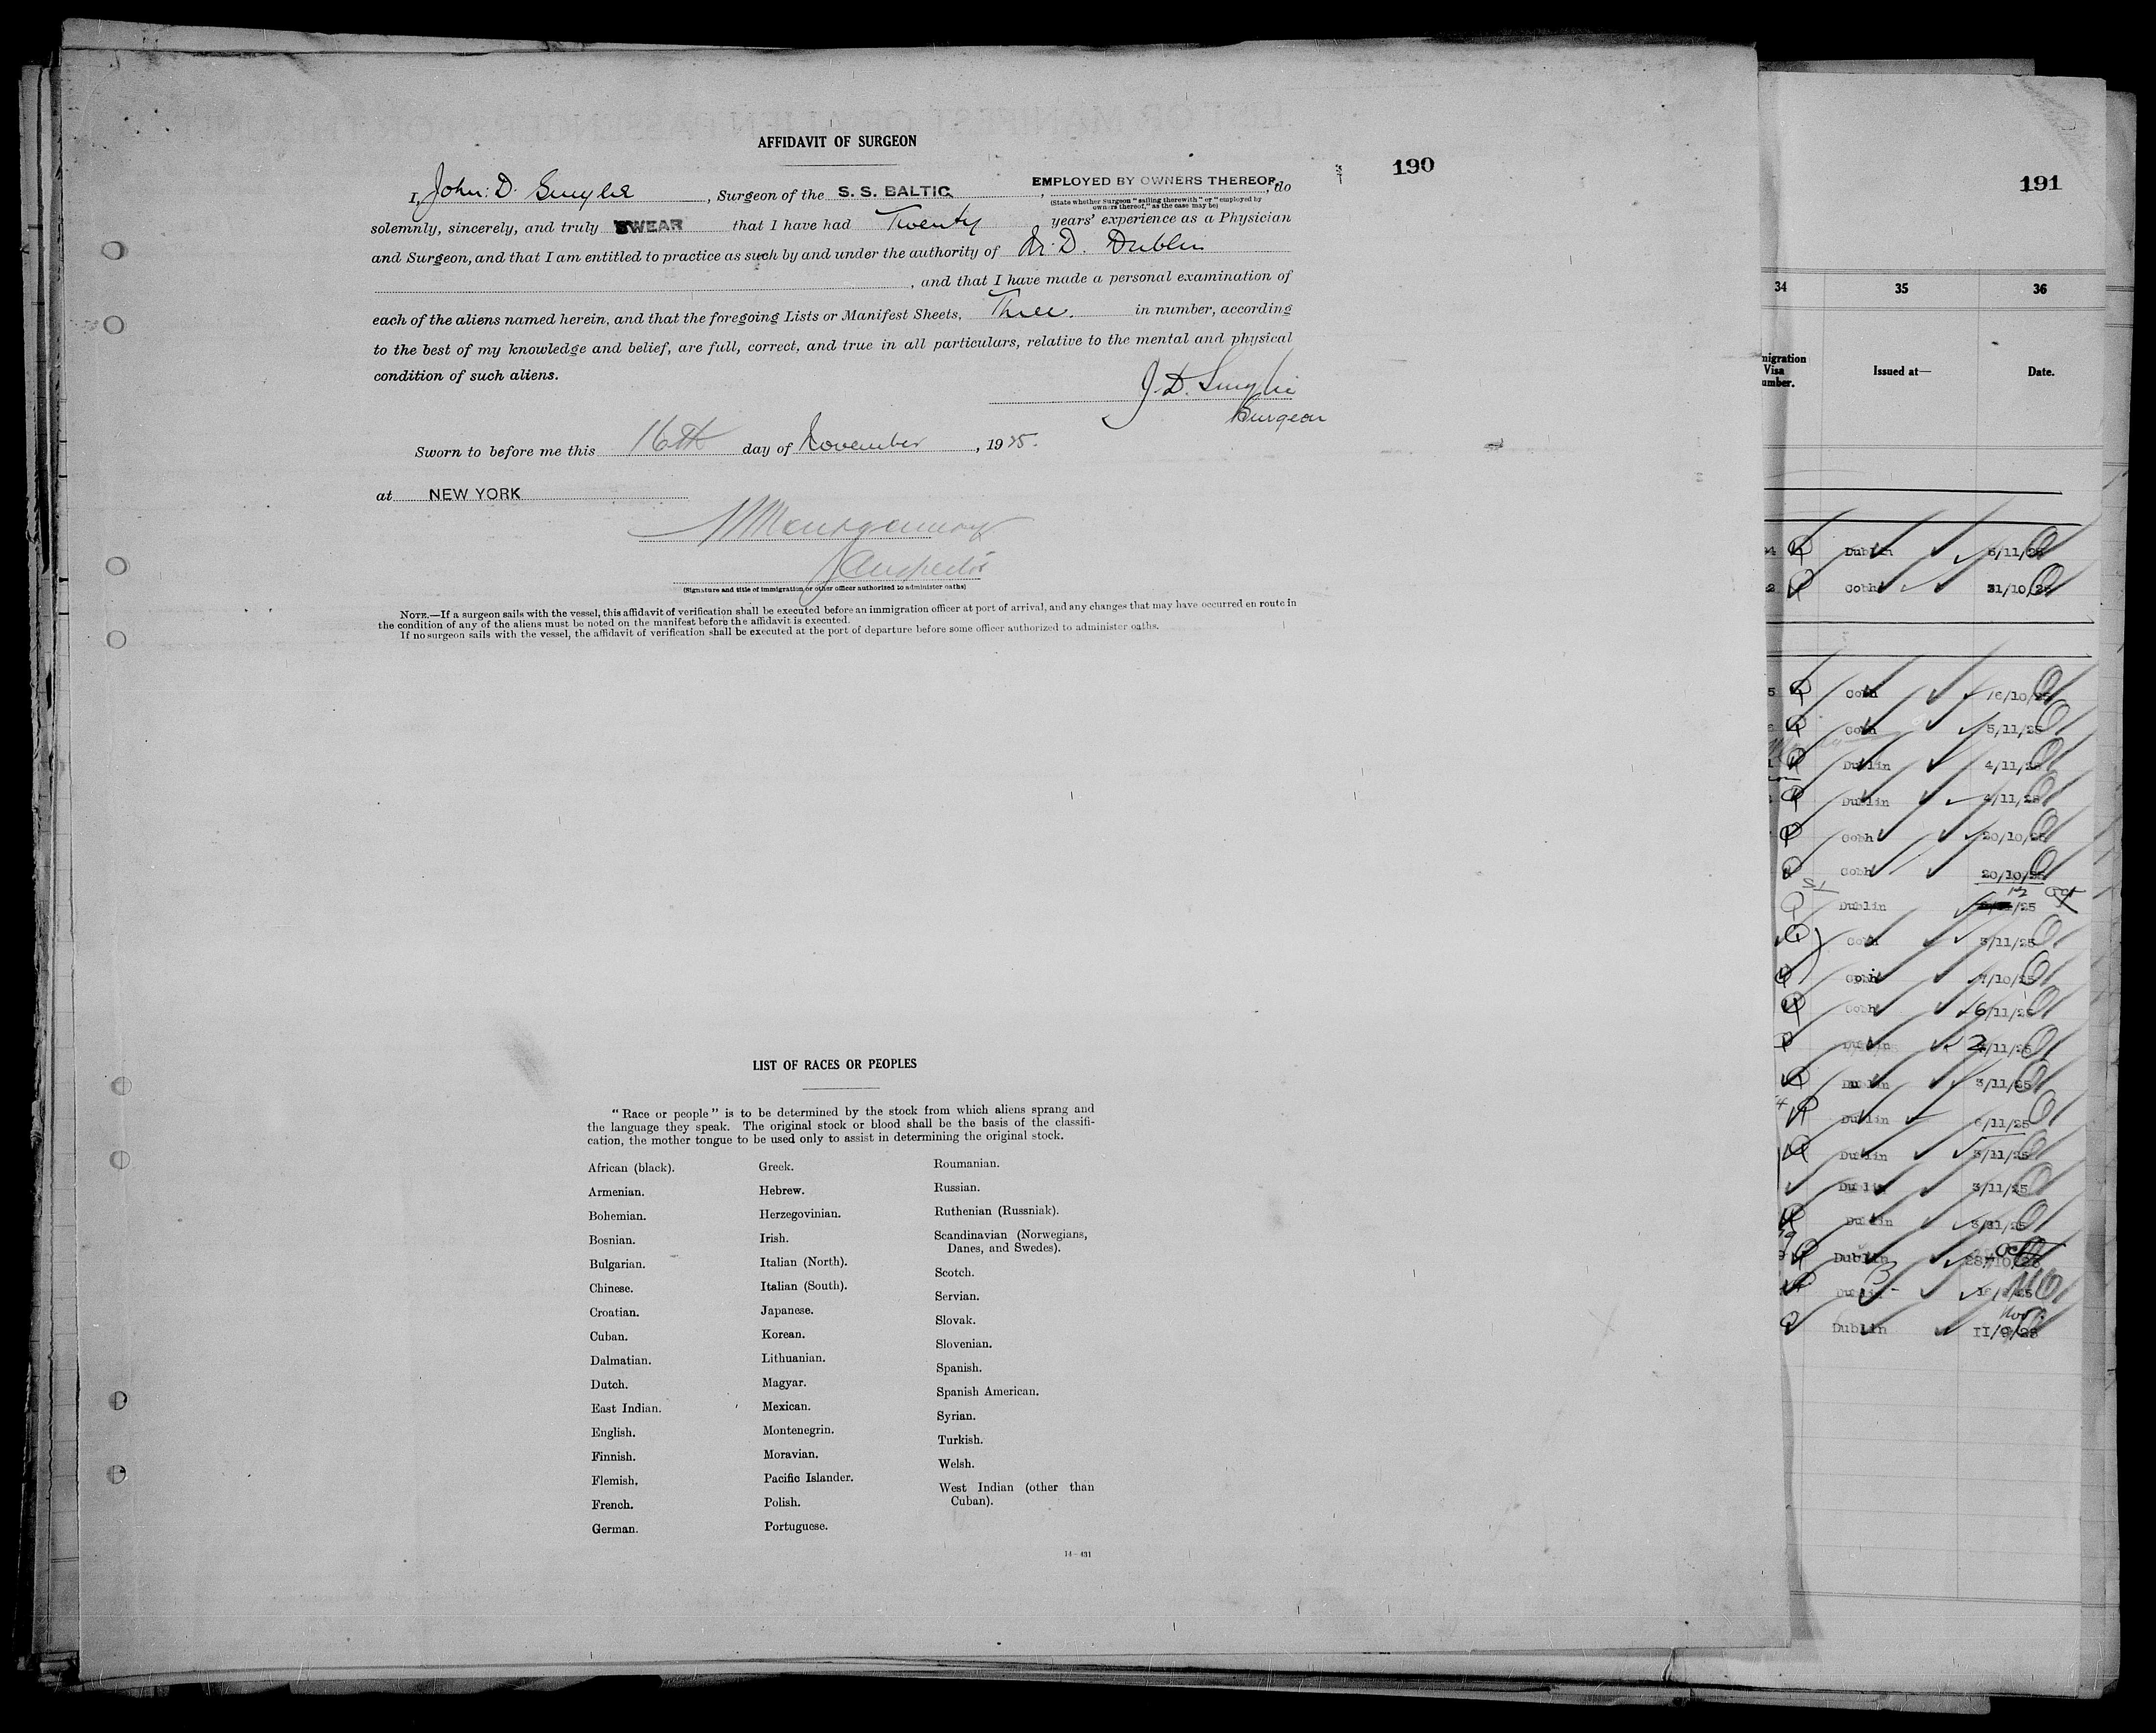 AFFIDAVIT OF SURGEON
190
I, John. D. Smylie, Surgeon of the S. S. BALTIC, EMPLOYED BY OWNERS THEREOF, do
(State whether Surgeon "sailing therewith" or "employed by
owners thereof," as the case may be)
solemnly, sincerely, and truly SWEAR that I have had Twenty years' experience as a Physician
and Surgeon, and that I am entitled to practice as such by and under the authority of M. D. Dublin
, and that I have made a personal examination of
each of the aliens named herein, and that the foregoing Lists or Manifest Sheets, Three. in number, according
to the best of my knowledge and belief, are full, correct, and true in all particulars, relative to the mental and physical
condition of such aliens.
J. D. Smylie
Surgeon
Sworn to before me this 16th day of November, 1925.
at NEW YORK
Montgomery
Inspector
(Signature and title of immigration or other officer authorized to administer oaths)
NOTE.—If a surgeon sails with the vessel, this affidavit of verification shall be executed before an immigration officer at port of arrival, and any changes that may have occurred en route in
the condition of any of the aliens must be noted on the manifest before the affidavit is executed.
If no surgeon sails with the vessel, the affidavit of verification shall be executed at the port of departure before some officer authorized to administer oaths.
LIST OF RACES OR PEOPLES
"Race or people" is to be determined by the stock from which aliens sprang and
the language they speak. The original stock or blood shall be the basis of the classifi-
cation, the mother tongue to be used only to assist in determining the original stock.
African (black).
Armenian.
Bohemian.
Bosnian.
Bulgarian.
Chinese.
Croatian.
Cuban.
Dalmatian.
Dutch.
East Indian.
English.
Finnish.
Flemish.
French.
German.
Greek.
Hebrew.
Herzegovinian.
Irish.
Italian (North).
Italian (South).
Japanese.
Korean.
Lithuanian.
Magyar.
Mexican.
Montenegrin.
Moravian.
Pacific Islander.
Polish.
Portuguese.
Roumanian.
Russian.
Ruthenian (Russniak).
Scandinavian (Norwegians,
Danes, and Swedes).
Scotch.
Servian.
Slovak.
Slovenian.
Spanish.
Spanish American.
Syrian.
Turkish.
Welsh.
West Indian (other than
Cuban).
14—431
191
34 35 36
migration
Visa
umber.
Issued at—
Date.
Dublin 5/11/25
Cobh 31/10/25
Cobh 16/10/25
Cobh 5/11/25
Dublin 4/11/25
Dublin 4/11/25
Cobh 20/10/25
Cobh 20/10/25
Dublin /25
Cobh 5/11/25
Cobh 7/10/25
Cobh 6/11/25
Dublin 2/11/25
Dublin 3/11/25
Dublin 6/11/25
Dublin 3/11/25
Dublin 3/11/25
Dublin
Dublin 28/10/25
Dublin
Nov
Dublin 11/9/25